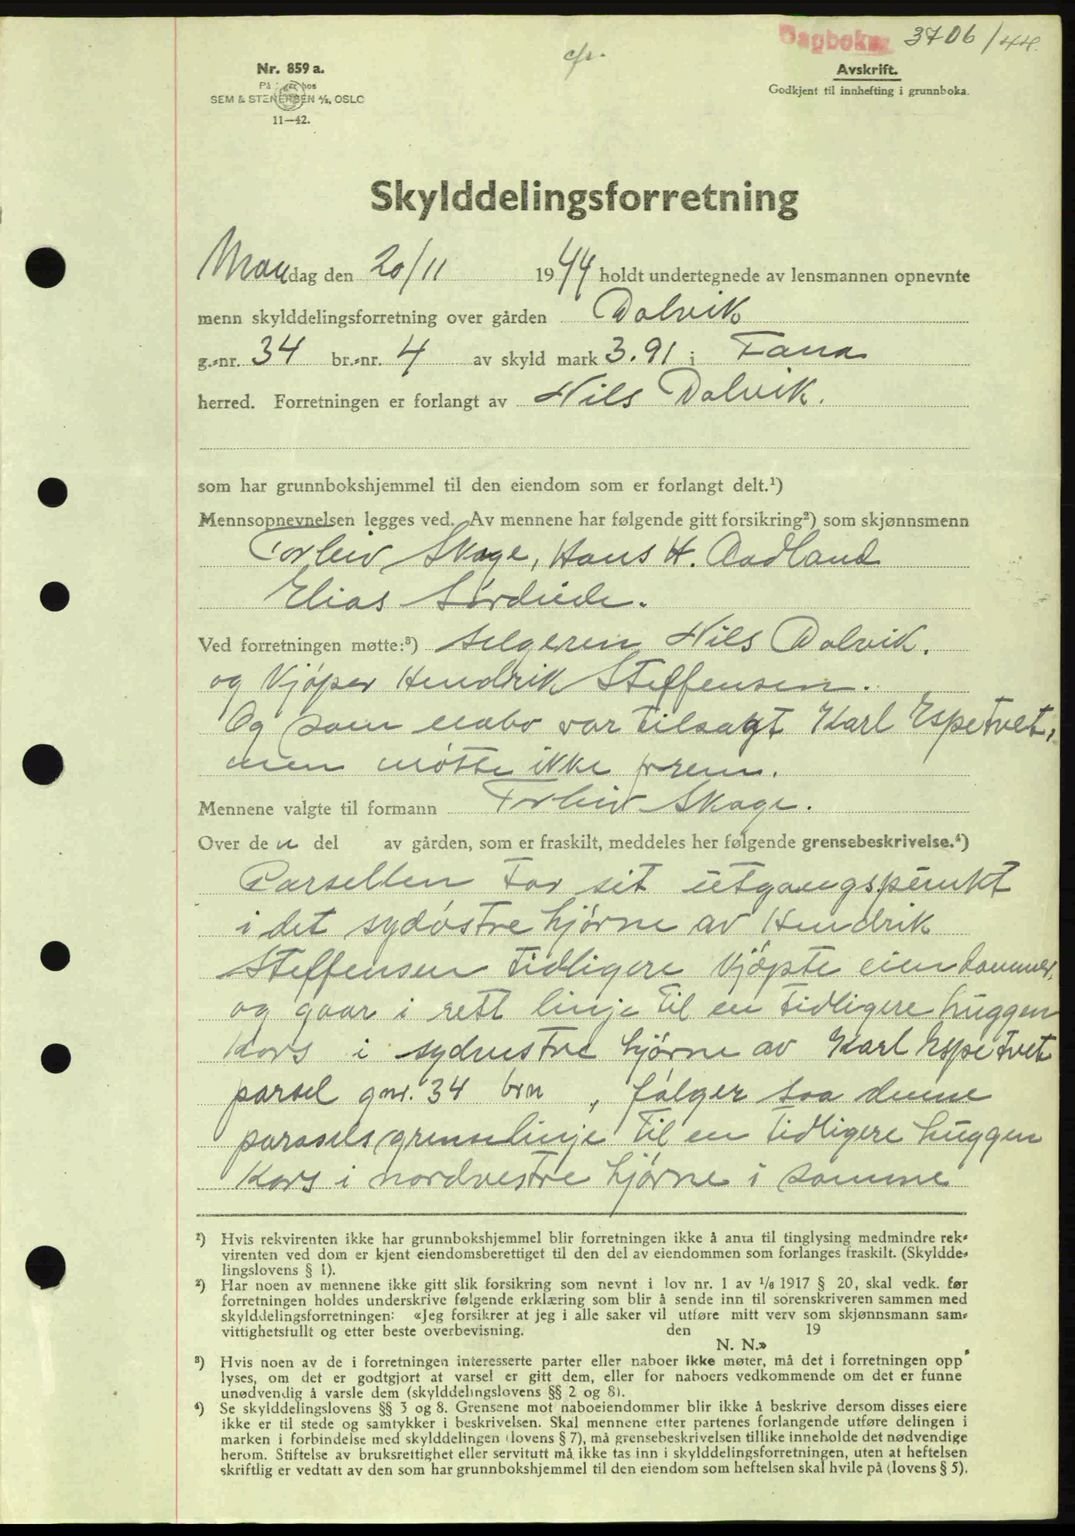 Dagboknr 3706/44.
Nr. 859 a.
SEM & STENERSEN A/S, OSLO
11—42.
Avskrift.
Godkjent til innhefting i grunnboka.
Skylddelingsforretning
Mandag den 20/11 1944 holdt undertegnede av lensmannen opnevnte
menn skylddelingsforretning over gården Dolvik
g.-nr. 34 br.-nr. 4 av skyld mark 3.91 i Fana
herred. Forretningen er forlangt av Nils Dolvik.
som har grunnbokshjemmel til den eiendom som er forlangt delt.¹)
Mennsopnevnelsen legges ved. Av mennene har følgende gitt forsikring²) som skjønnsmenn
Torleiv Skage, Hans H. Aadland
Elias
Ved forretningen møtte:³) selgeren Nils Dolvik.
og kjøper Hendrik Steffensen.
Og som nabo var tilsagt Karl Espetvet,
men møtte ikke frem.
Mennene valgte til formann Torleiv Skage.
Over den del av gården, som er fraskilt, meddeles her følgende grensebeskrivelse.⁴)
Parsellen tar sit utgangspunkt
i det sydøstre hjørne av Hendrik
Steffensen tidligere kjøpte eiendommer,
og gaar i rett linje til en tidligere huggen
kors i sydvestre hjørne av Karl Espetvet
parsel gnr. 34 brn , følger saa denne
parsels grenselinje til en tidligere huggen
kors i nordvestre hjørne i samme
¹) Hvis rekvirenten ikke har grunnbokshjemmel blir forretningen ikke å anta til tinglysing medmindre rek-
virenten ved dom er kjent eiendomsberettiget til den del av eiendommen som forlanges fraskilt. (Skyldde-
lingslovens § 1).
²) Har noen av mennene ikke gitt slik forsikring som nevnt i lov nr. 1 av 1/6 1917 § 20, skal vedk. før
forretningen holdes underskrive følgende erklæring som blir å sende inn til sorenskriveren sammen med
skylddelingsforretningen: «Jeg forsikrer at jeg i alle saker vil utføre mitt verv som skjønnsmann sam-
vittighetsfullt og etter beste overbevisning. den 19
N. N.»
³) Hvis noen av de i forretningen interesserte parter eller naboer ikke møter, må det i forretningen opp
lyses, om det er godtgjort at varsel er gitt dem, eller for naboers vedkommende om det er funne
unødvendig å varsle dem (skylddelingslovens §§ 2 og 8).
⁴) Se skylddelingslovens §§ 3 og 8. Grensene mot naboeiendommer blir ikke å beskrive dersom disses eiere
ikke er til stede og samtykker i beskrivelsen. Skal mennene etter partenes forlangende utføre delingen i
marken i forbindelse med skylddelingen (lovens § 7), må grensebeskrivelsen tillike inneholde det nødvendige
herom. Stiftelse av bruksrettighet eller servitutt må ikke tas inn i skylddelingsforretningen, uten at heftelsen
skriftlig er vedtatt av den som har grunnbokshjemmel til den eiendom som heftelsen skal hvile på (lovens § 5).